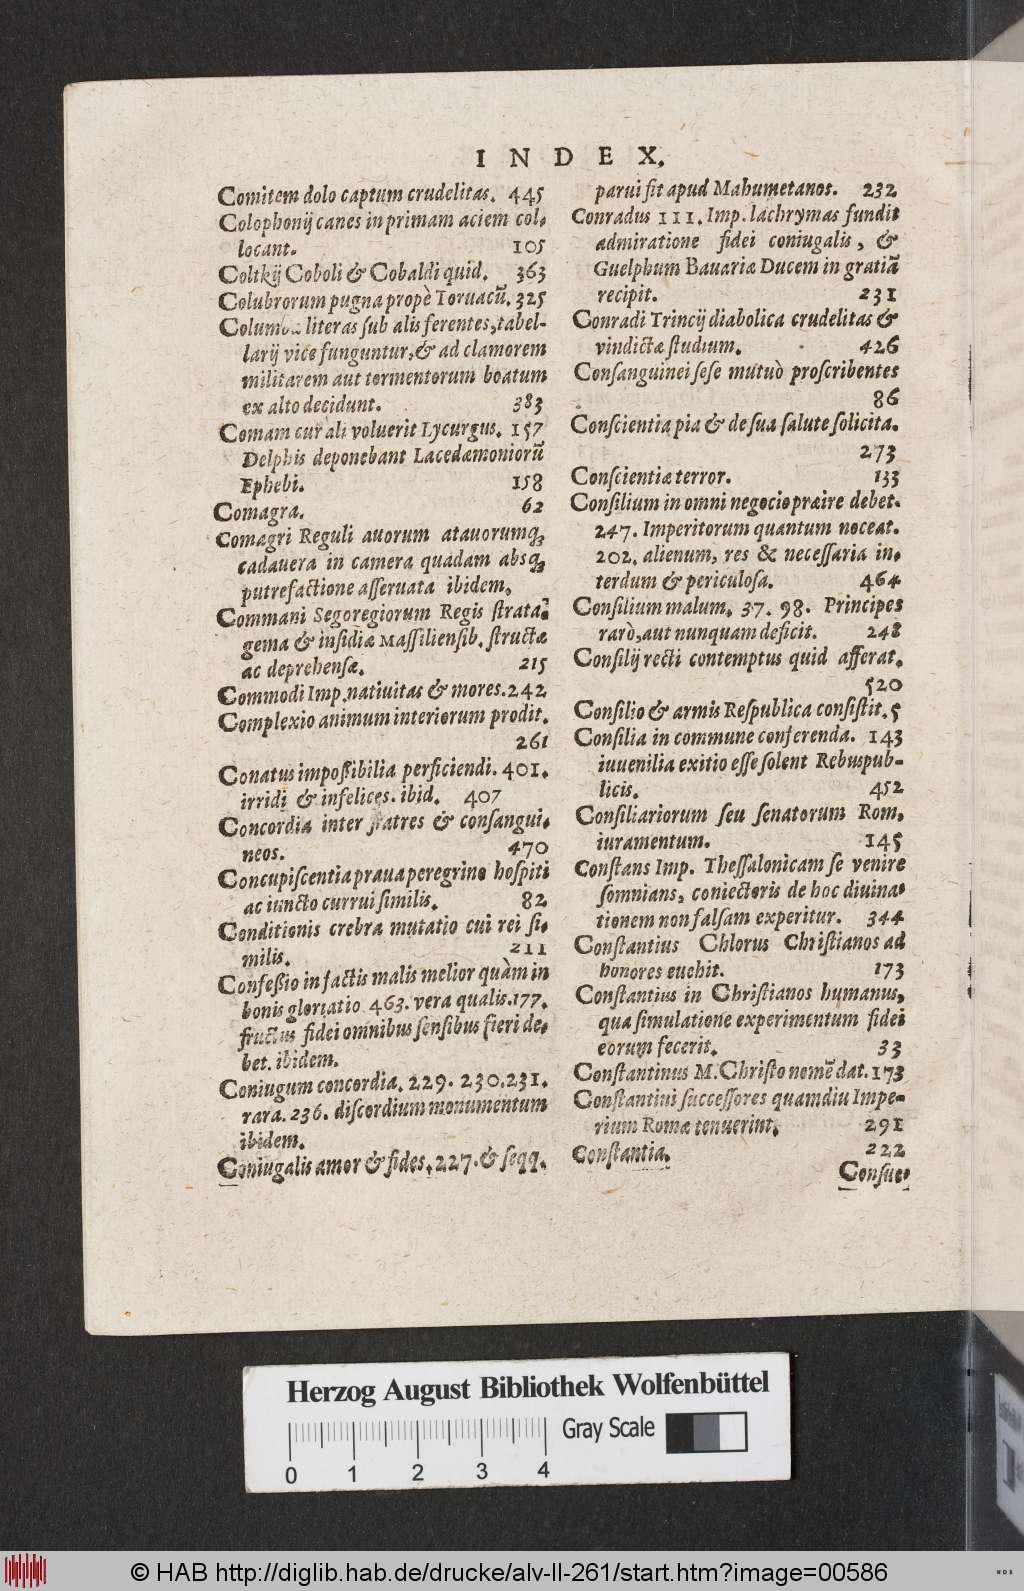 INDEX.
Comitem dolo captum crudelitas. 445
Colophonij canes in primam aciem col-
locant. 105
Coltkij Coboli & Cobaldi quid. 363
Colubrorum pugna propè Toruacū. 325
Columbæ literas sub alis ferentes, tabel-
larij vice funguntur, & ad clamorem
militarem aut tormentorum boatum
ex alto decidunt. 383
Comam cur ali voluerit Lycurgus. 157
Delphis deponebant Lacedæmoniorū
Ephebi. 158
Comagra. 62
Comagri Reguli auorum atauorumq́;
cadauera in camera quadam absq́;
putrefactione asseruata ibidem.
Commani Segoregiorum Regis strata-
gema & insidiæ Massiliensib. structæ
ac deprehensæ. 215
Commodi Imp. natiuitas & mores. 242
Complexio animum interiorum prodit.
261
Conatus impossibilia perficiendi. 401.
irridi & infelices. ibid. 407
Concordia inter fratres & consangui-
neos. 470
Concupiscentia praua peregrino hospiti
ac iuncto currui similis. 82
Conditionis crebra mutatio cui rei si-
milis. 211
Confessio in factis malis melior quàm in
bonis gloriatio 463. vera qualis. 177.
fructus fidei omnibus sensibus fieri de-
bet. ibidem.
Coniugum concordia. 229. 230. 231.
rara. 236. discordium monumentum
ibidem.
Coniugalis amor & fides. 227. & seqq.
parui fit apud Mahumetanos. 232
Conradus III. Imp. lachrymas fundit
admiratione fidei coniugalis, &
Guelphum Bauariæ Ducem in gratiā
recipit. 231
Conradi Trincij diabolica crudelitas &
vindictæ studium. 426
Consanguinei sese mutuò proscribentes
86
Conscientia pia & de sua salute solicita.
273
Conscientiæ terror. 133
Consilium in omni negocio præire debet.
247. Imperitorum quantum noceat.
202. alienum, res & necessaria in-
terdum & periculosa. 464
Consilium malum. 37. 98. Principes
rarò, aut nunquam deficit. 248
Consilij recti contemptus quid afferat.
520
Consilio & armis Respublica consistit. 5
Consilia in commune conferenda. 143
iuuenilia exitio esse solent Rebuspub-
licis. 452
Consiliariorum seu senatorum Rom.
iuramentum. 145
Constans Imp. Thessalonicam se venire
somnians, coniectoris de hoc diuina-
tionem non falsam experitur. 344
Constantius Chlorus Christianos ad
honores euehit. 173
Constantius in Christianos humanus,
qua simulatione experimentum fidei
eorum fecerit. 33
Constantinus M. Christo nomē dat. 173
Constantini successores quamdiu Impe-
rium Romæ tenuerint. 291
Constantia. 222
Consue-
Herzog August Bibliothek Wolfenbüttel
Gray Scale
0 1 2 3 4
© HAB http://diglib.hab.de/drucke/alv-ll-261/start.htm?image=00586